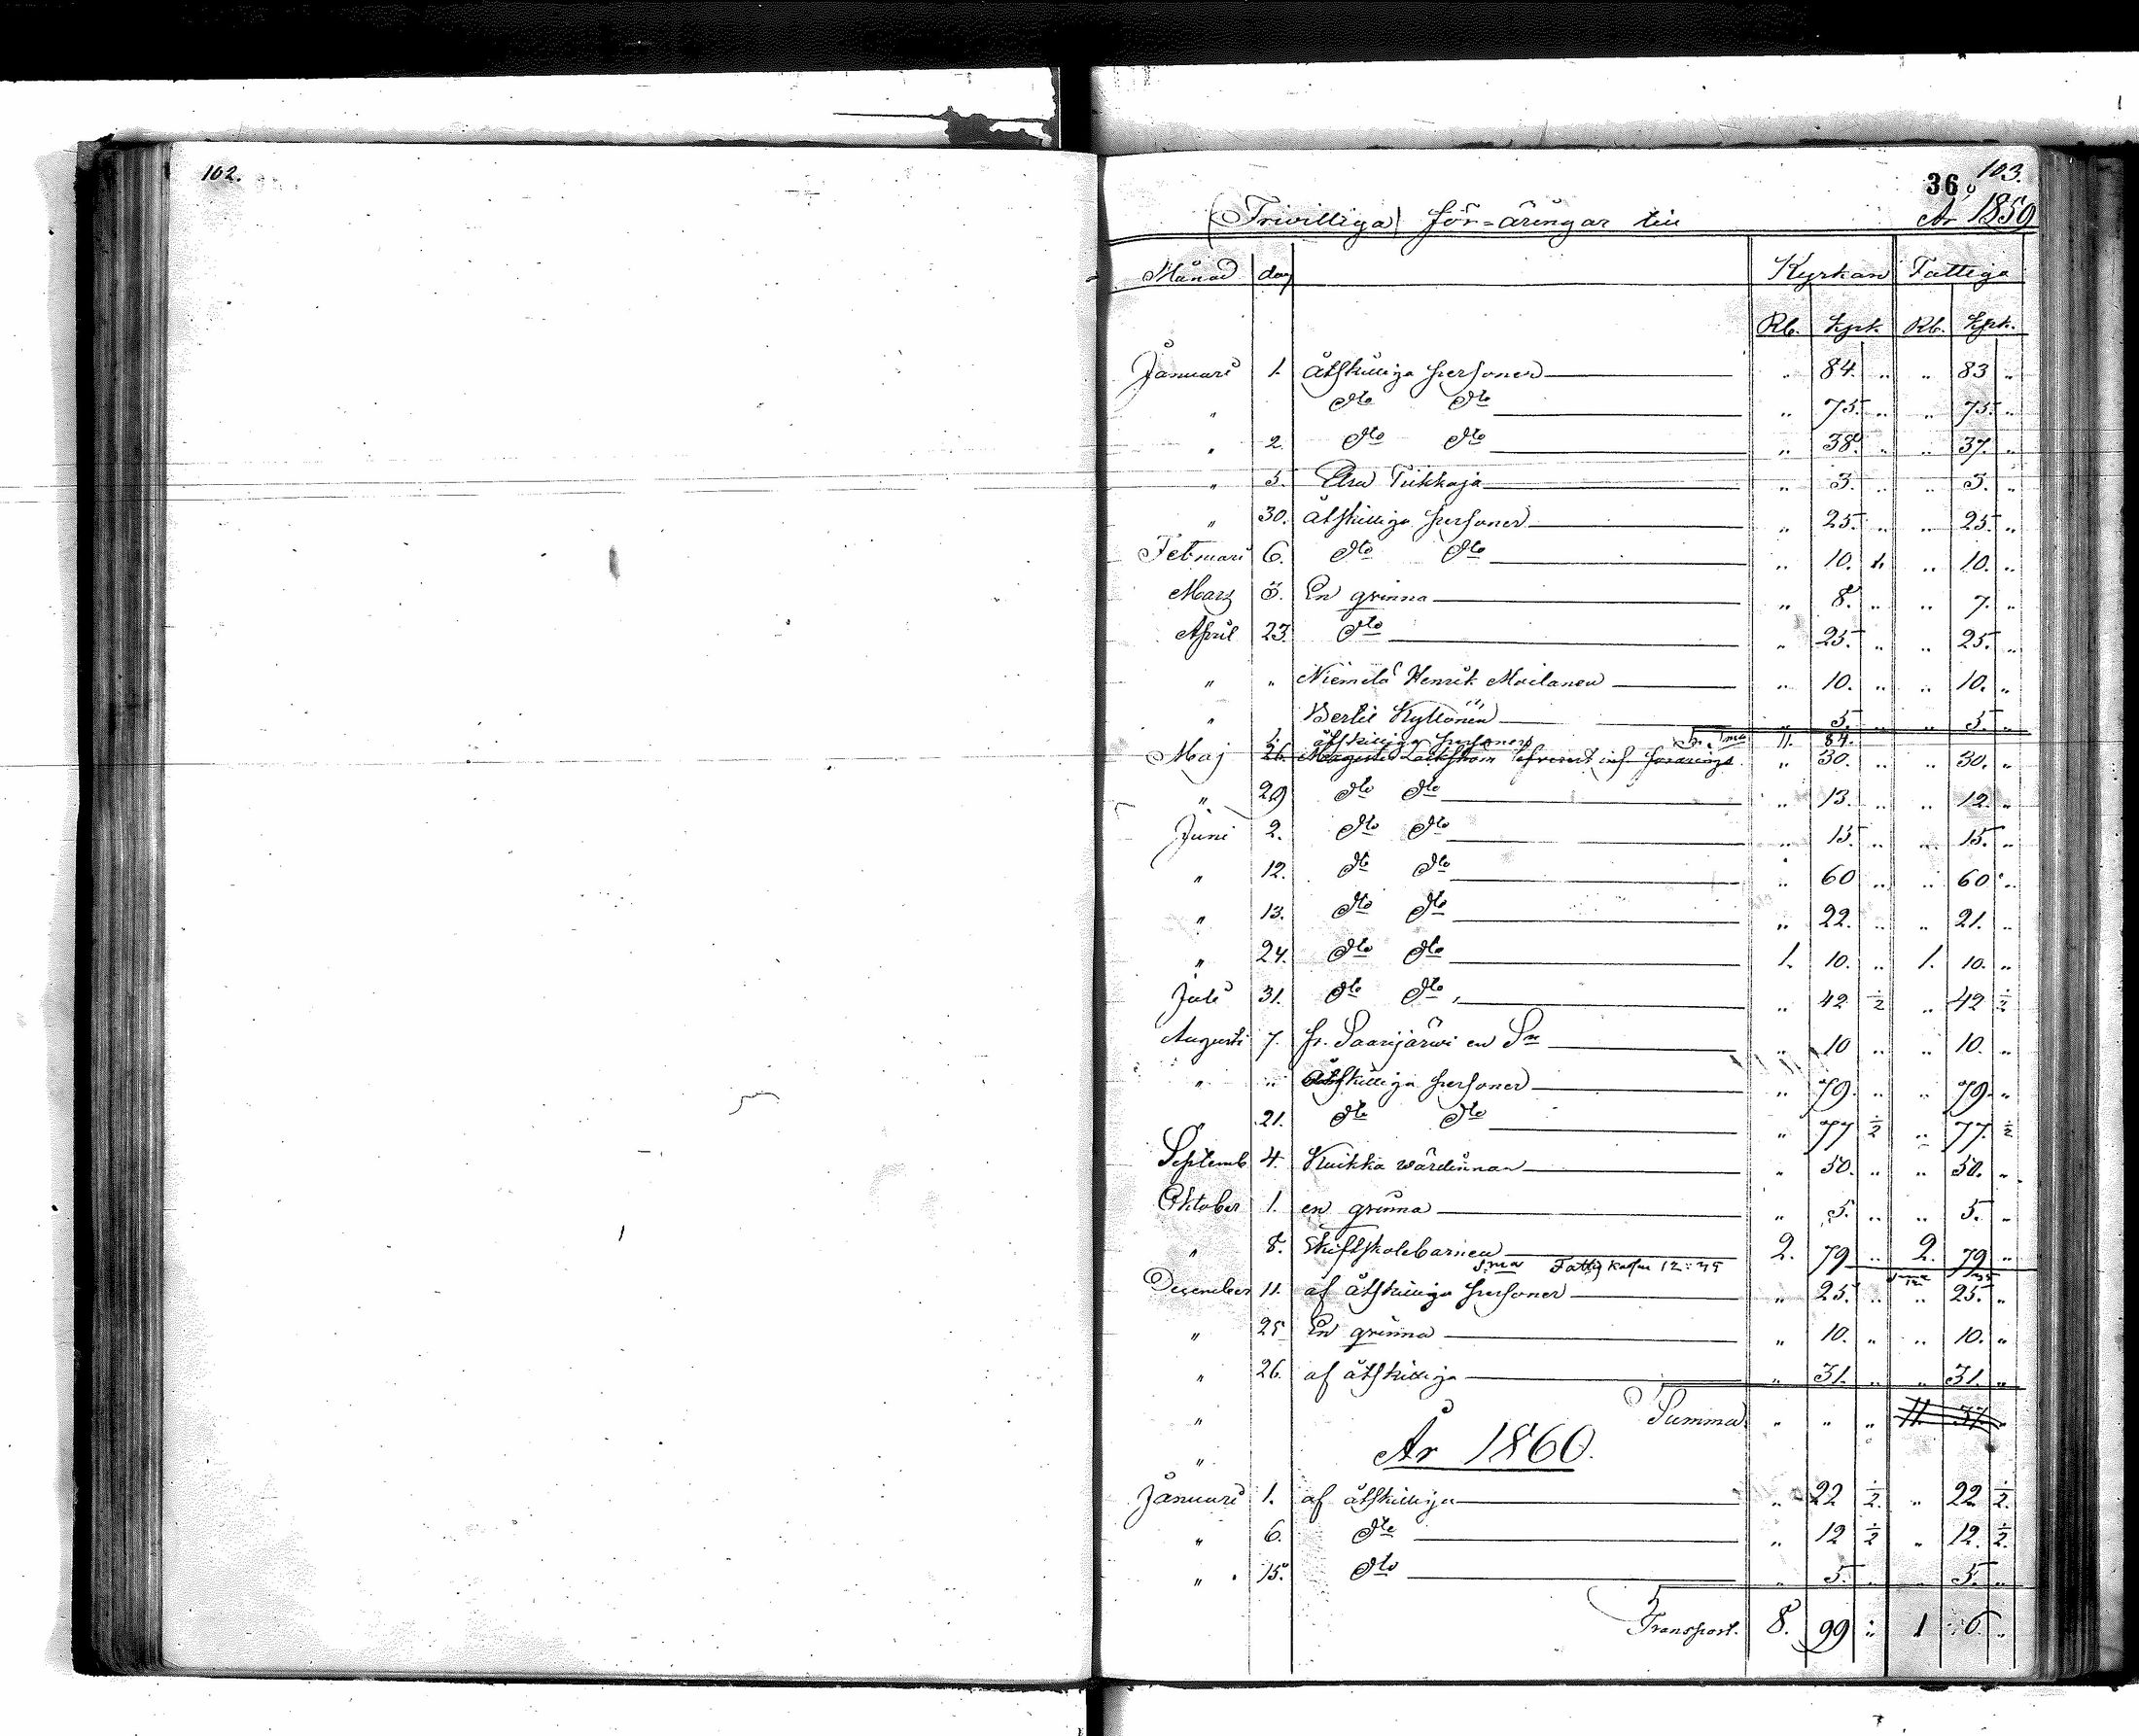 102.
103.
36
År 1859
(Frivilliga) för=äringar till
Månad dag Kyrkan Fattiga
Rb. Kpk. Rb. Kpk.
Januari 1. Åtskilliga personer .. 84. .. .. 83 ..
" dto dto .. 75. .. .. 75. ..
" 2. dto dto .. 38. .. .. 37. ..
" 5. Tiikkaja .. 3. .. .. 3. ..
" 30. Åtskilliga personer .. 25. .. .. 25. ..
Februari 6. dto dto .. 10. .. .. 10. ..
Mars En qvinna .. 8. .. .. 7. ..
April 23. dto .. 25. .. .. 25. ..
" " Niemelä Henrik Moilanen .. 10. .. .. 10. ..
" Bertil Kyllönen .. 5. .. .. 5. ..
1. åtskilliga personer 11. 84.
Maj 26. .. 30. .. .. 30. ..
" 29 dto dto .. 13. .. .. 12. ..
Juni 2. dto dto .. 15. .. .. 15. ..
" 12. dto dto .. 60 .. .. 60 ..
" 13. dto dto .. 22. .. .. 21. ..
" 24. dto dto 1. 10. .. 1. 10. ..
Juli 31. dto dto .. 42 ½ .. 42 ½
Augusti 7. fr. Saarijärvi en .. 10 .. .. 10. ..
" " Åtskilliga personer .. 79. .. .. 79. ..
" 21. dto dto .. 77 ½ .. 77. ½
Septemb 4. Kuikka värdinnan .. 50. .. .. 50. ..
Oktober 1. en qvinna .. 5. .. .. 5. ..
" 8. Skiftskolebarnen 2. 79 .. 2. 79 ..
S:ma Fattig kassan 12: 45
December 11. af åtskilliga personer .. 25. .. .. 25. ..
" 25 En qvinna .. 10. .. .. 10. ..
" 26. af åtskilliga .. 31. .. .. 31. ..
" Summa .. .. .. 11. 37. ..
" År 1860.
Januari 1. af åtskilliga .. 22 ½ .. 22 ½
" 6. dto .. 12 ½ .. 12. ½
" 15. dto .. 5. .. .. 5. ..
Transport. 8. 99 .. 1 6. ..